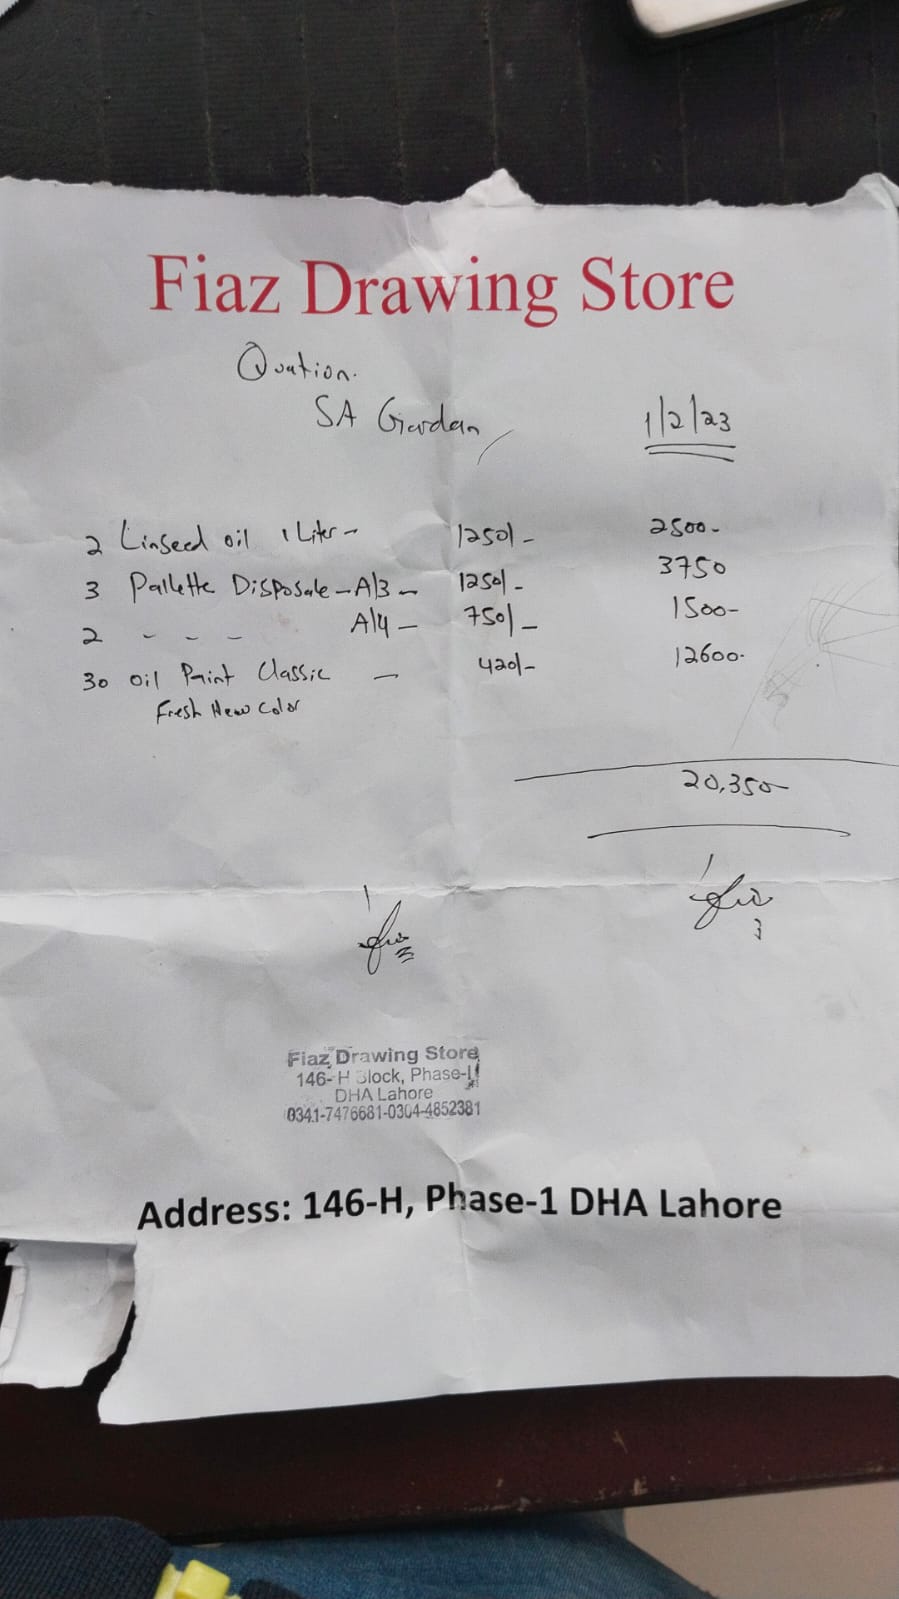 Fiaz Drawing Store
Quation.
SA Gardan
1/2/23
2 Linseed oil 1 Liter - 1250/- 2500-
3 Pallette Disposale - A/3 - 1250/- 3750
2 - - - A/4 - 750/- 1500-
30 oil Paint Classic - 420/- 12600-
Fresh New Color
20,350-
Fiaz Drawing Store
146-H Block, Phase-I
DHA Lahore
0341-7476681-0304-4852381
Address: 146-H, Phase-1 DHA Lahore